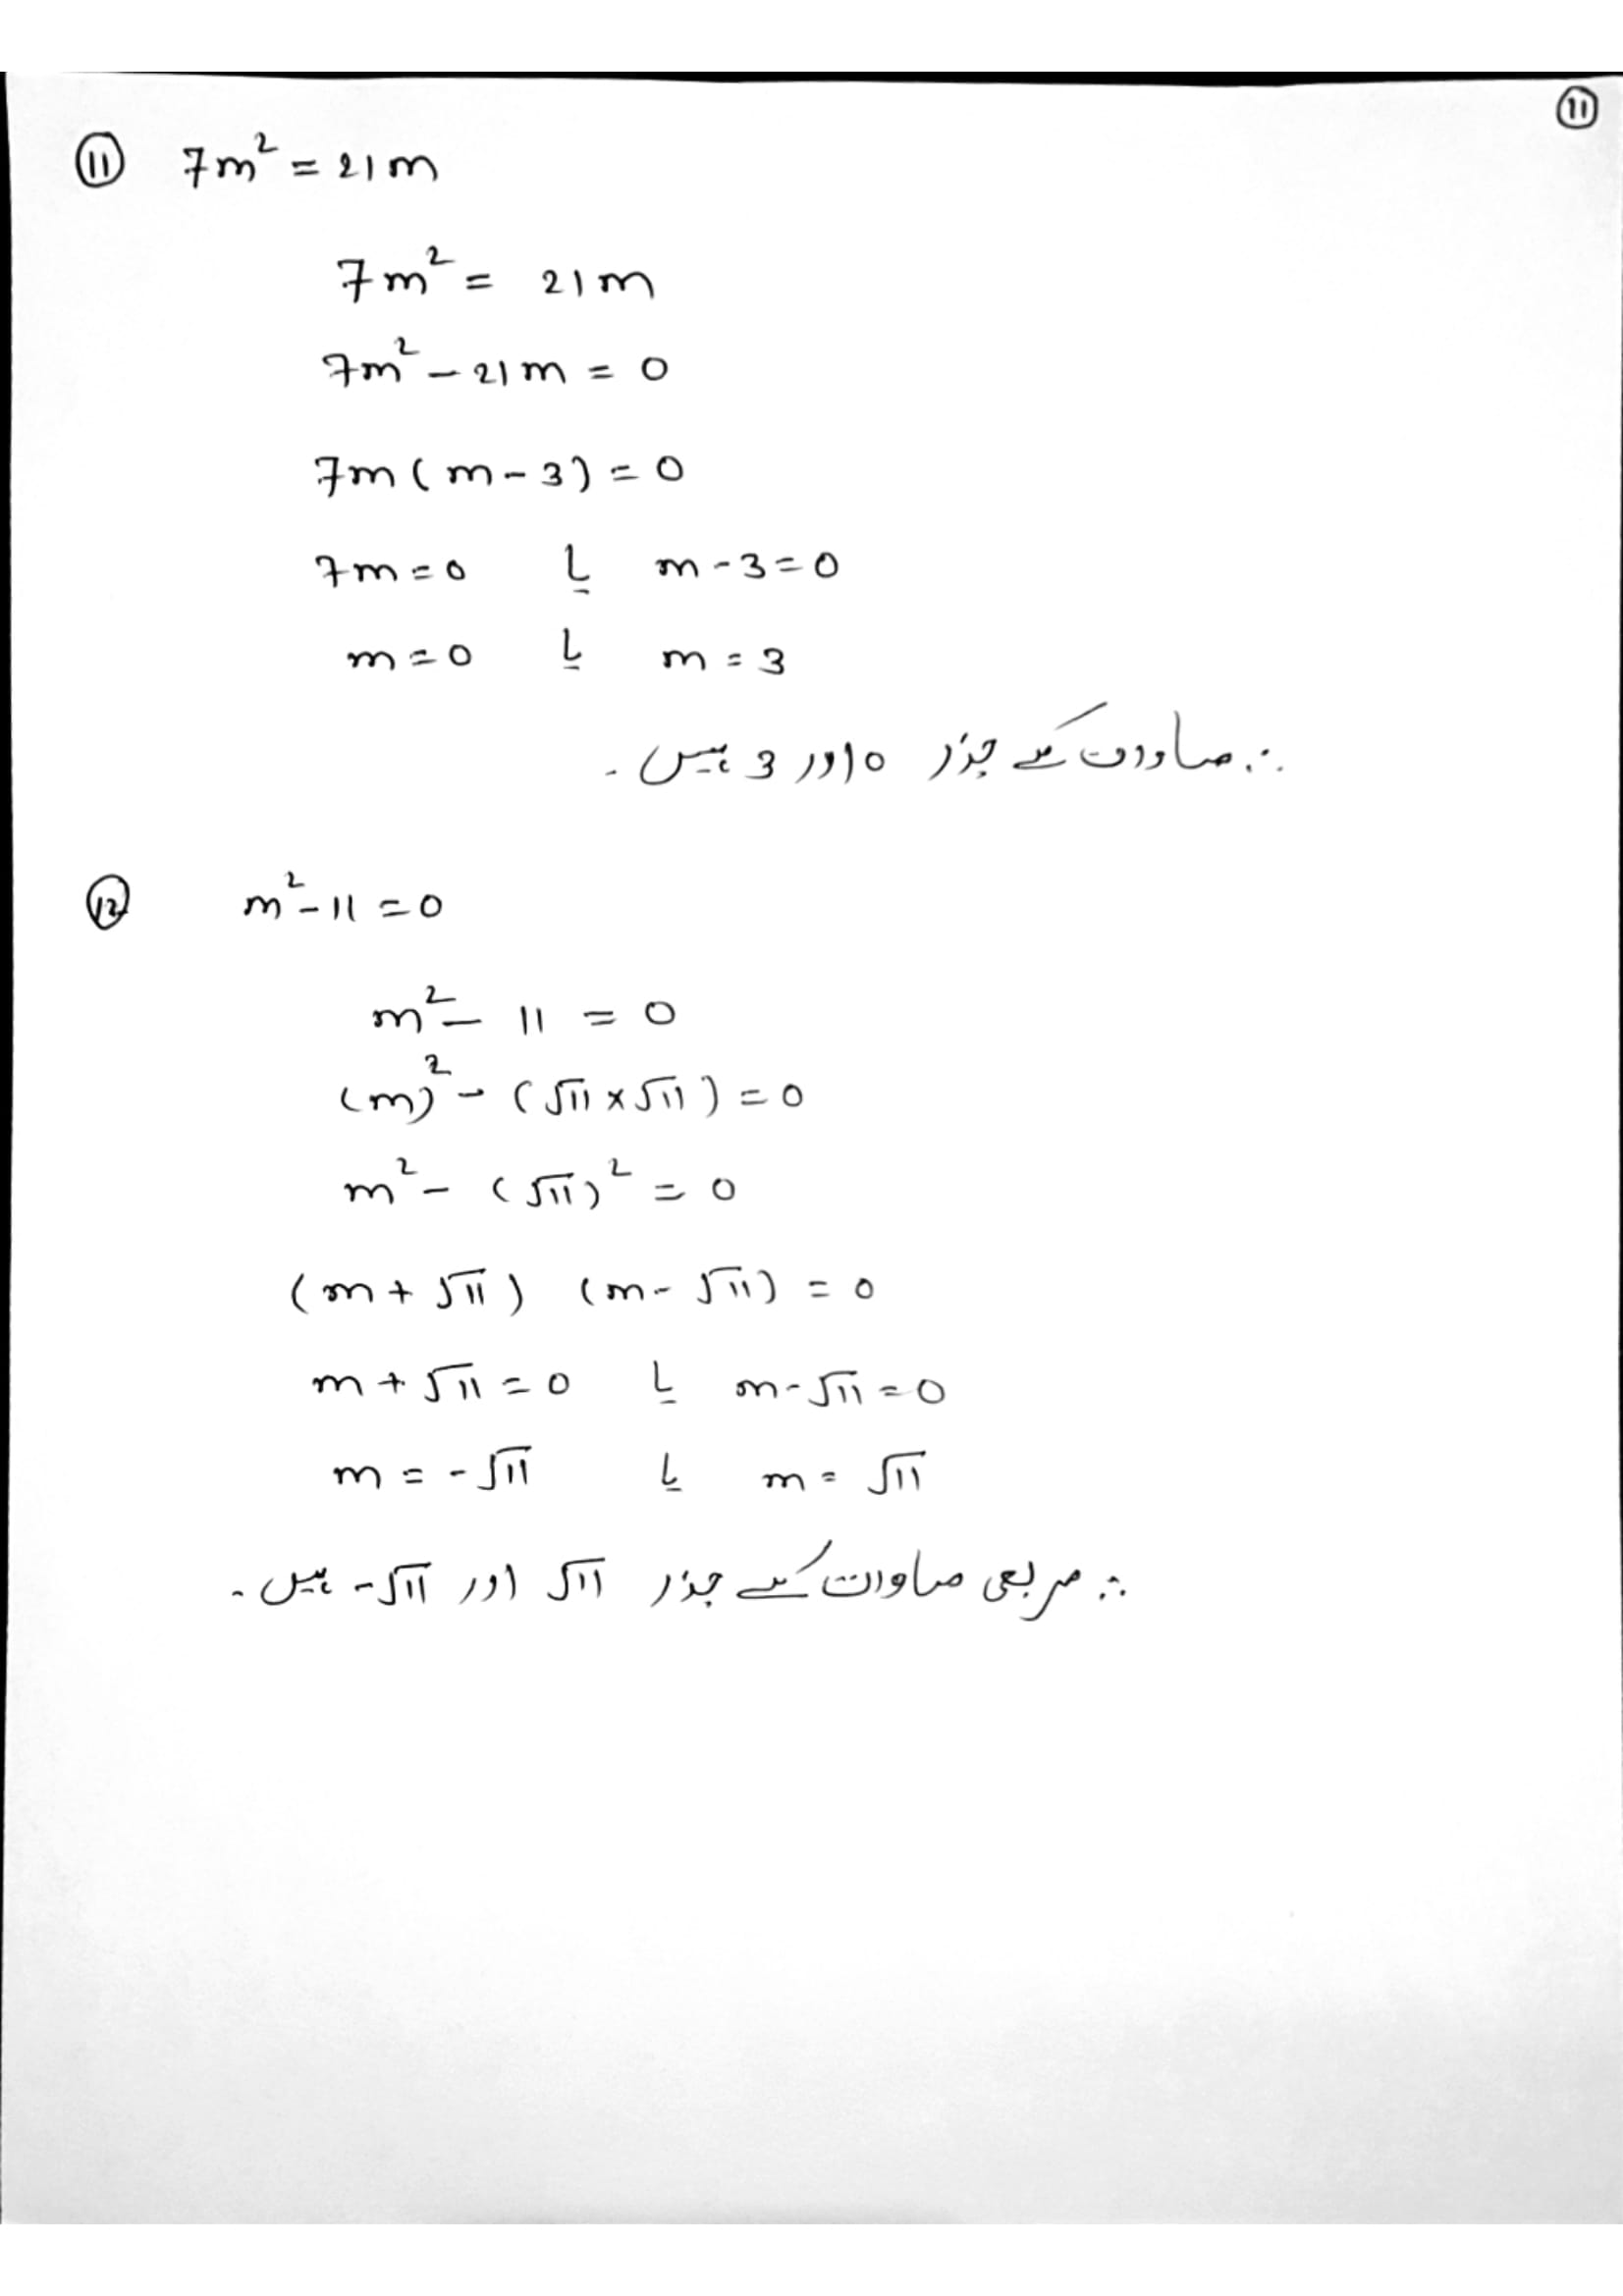 ⑪
⑪ 7m² = 21m
7m² = 21m
7m² - 21m = 0
7m (m - 3) = 0
7m = 0 یا m - 3 = 0
m = 0 یا m = 3
∴ مساوات کے جذر 0 اور 3 ہیں۔
⑫ m² - 11 = 0
m² - 11 = 0
(m)² - (√11 × √11) = 0
m² - (√11)² = 0
(m + √11) (m - √11) = 0
m + √11 = 0 یا m - √11 = 0
m = -√11 یا m = √11
∴ مربعی مساوات کے جذر √11 اور -√11 ہیں۔